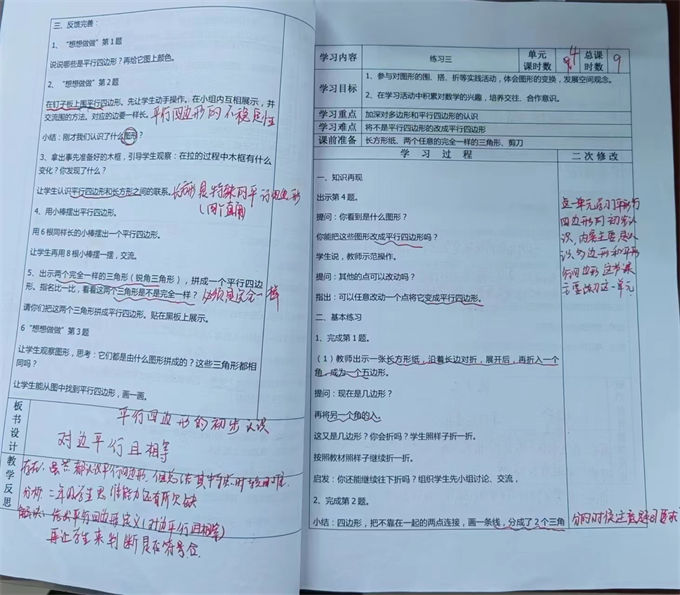 三、反馈完善：
1、“想想做做”第1题
说说哪些是平行四边形？再给它图上颜色。
2、“想想做做”第2题
在钉子板上围平行四边形。先让学生动手操作。在小组内互相展示，并
交流围的方法。对应的边要一样长。平行四边形的不稳定性
小结：刚才我们认识了什么图形？
3、拿出事先准备好的木框，引导学生观察：在拉的过程中木框有什么
变化？你发现了什么？
让学生认识平行四边形和长方形之间的联系。长方形是特殊的平行四边形
（四个直角）
4、用小棒摆出平行四边形。
用6根同样长的小棒摆出一个平行四边形。
让学生再用8根小棒摆一摆，交流。
5、出示两个完全一样的三角形（锐角三角形），拼成一个平行四边
形。指名比一比，看看这两个三角形是不是完全一样？必须是完全一样
请你们把这两个三角形拼成平行四边形。贴在黑板上展示。
6“想想做做”第3题
让学生观察图形，思考：它们都是由什么图形拼成的？这些三角形都相
同吗？
让学生能从图中找到平行四边形，画一画。
板书设计
平行四边形的初步认识
对边平行且相等
教学反思
分析：二年级学生思维能力还有所欠缺
平行四边形定义（对边平行且相等）
再让学生来判断是否符合
学习内容 练习三 单元课时数 4 总课时数 9
学习目标
1、参与对图形的围、搭、折等实践活动，体会图形的变换，发展空间观念。
2、在学习活动中积累对数学的兴趣，培养交往、合作意识。
学习重点 加深对多边形和平行四边形的认识
学习难点 将不是平行四边形的改成平行四边形
课前准备 长方形纸、两个任意的完全一样的三角形、剪刀
学 习 过 程 二 次 修 改
一、知识再现
出示第4题。
提问：你看到是什么图形？
你能把这些图形改成平行四边形吗？
学生说，教师示范操作。
提问：其他的点可以改动吗？
指出：可以任意改动一个点将它变成平行四边形。
二、基本练习
1、完成第1题。
（1）教师出示一张长方形纸，沿着长边对折，展开后，再折入一个
角，成为一个五边形。
提问：现在是几边形？
再将另一个角的入。
这又是几边形？你会折吗？学生照样子折一折。
按照教材照样子继续折一折。
启发：你还能继续往下折吗？组织学生先小组讨论、交流，
2、完成第2题。
小结：四边形，把不在一起的两点连接，画一条线，分成了2个三角
这一单元是对平行
四边形的初步认
识，内容主要是认
识多边形和平行
四边形